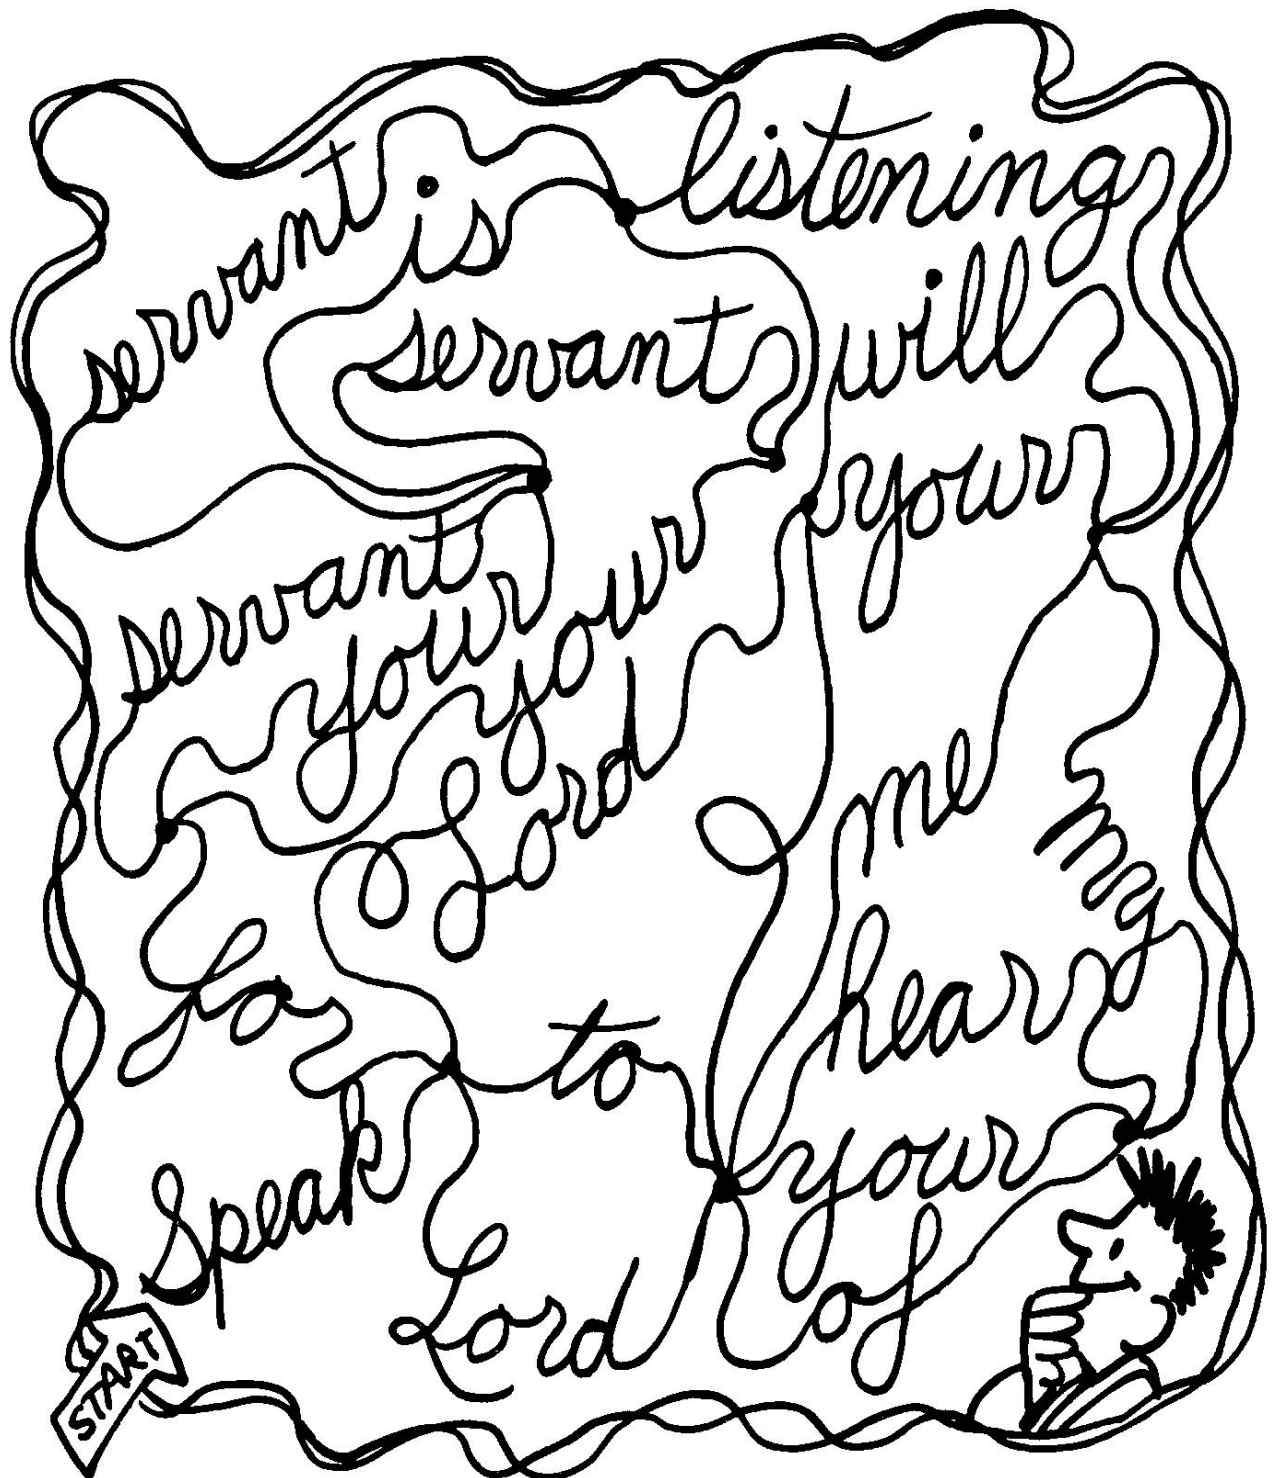 servant is listening
servant will
your
servant
your your
Lord
me my
for hear
to
Speak your
Lord of
START